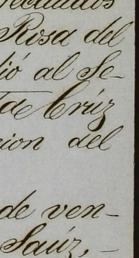 Rosa del
dió al Se-
de Crúz
cion del
de ven-
Saúz,